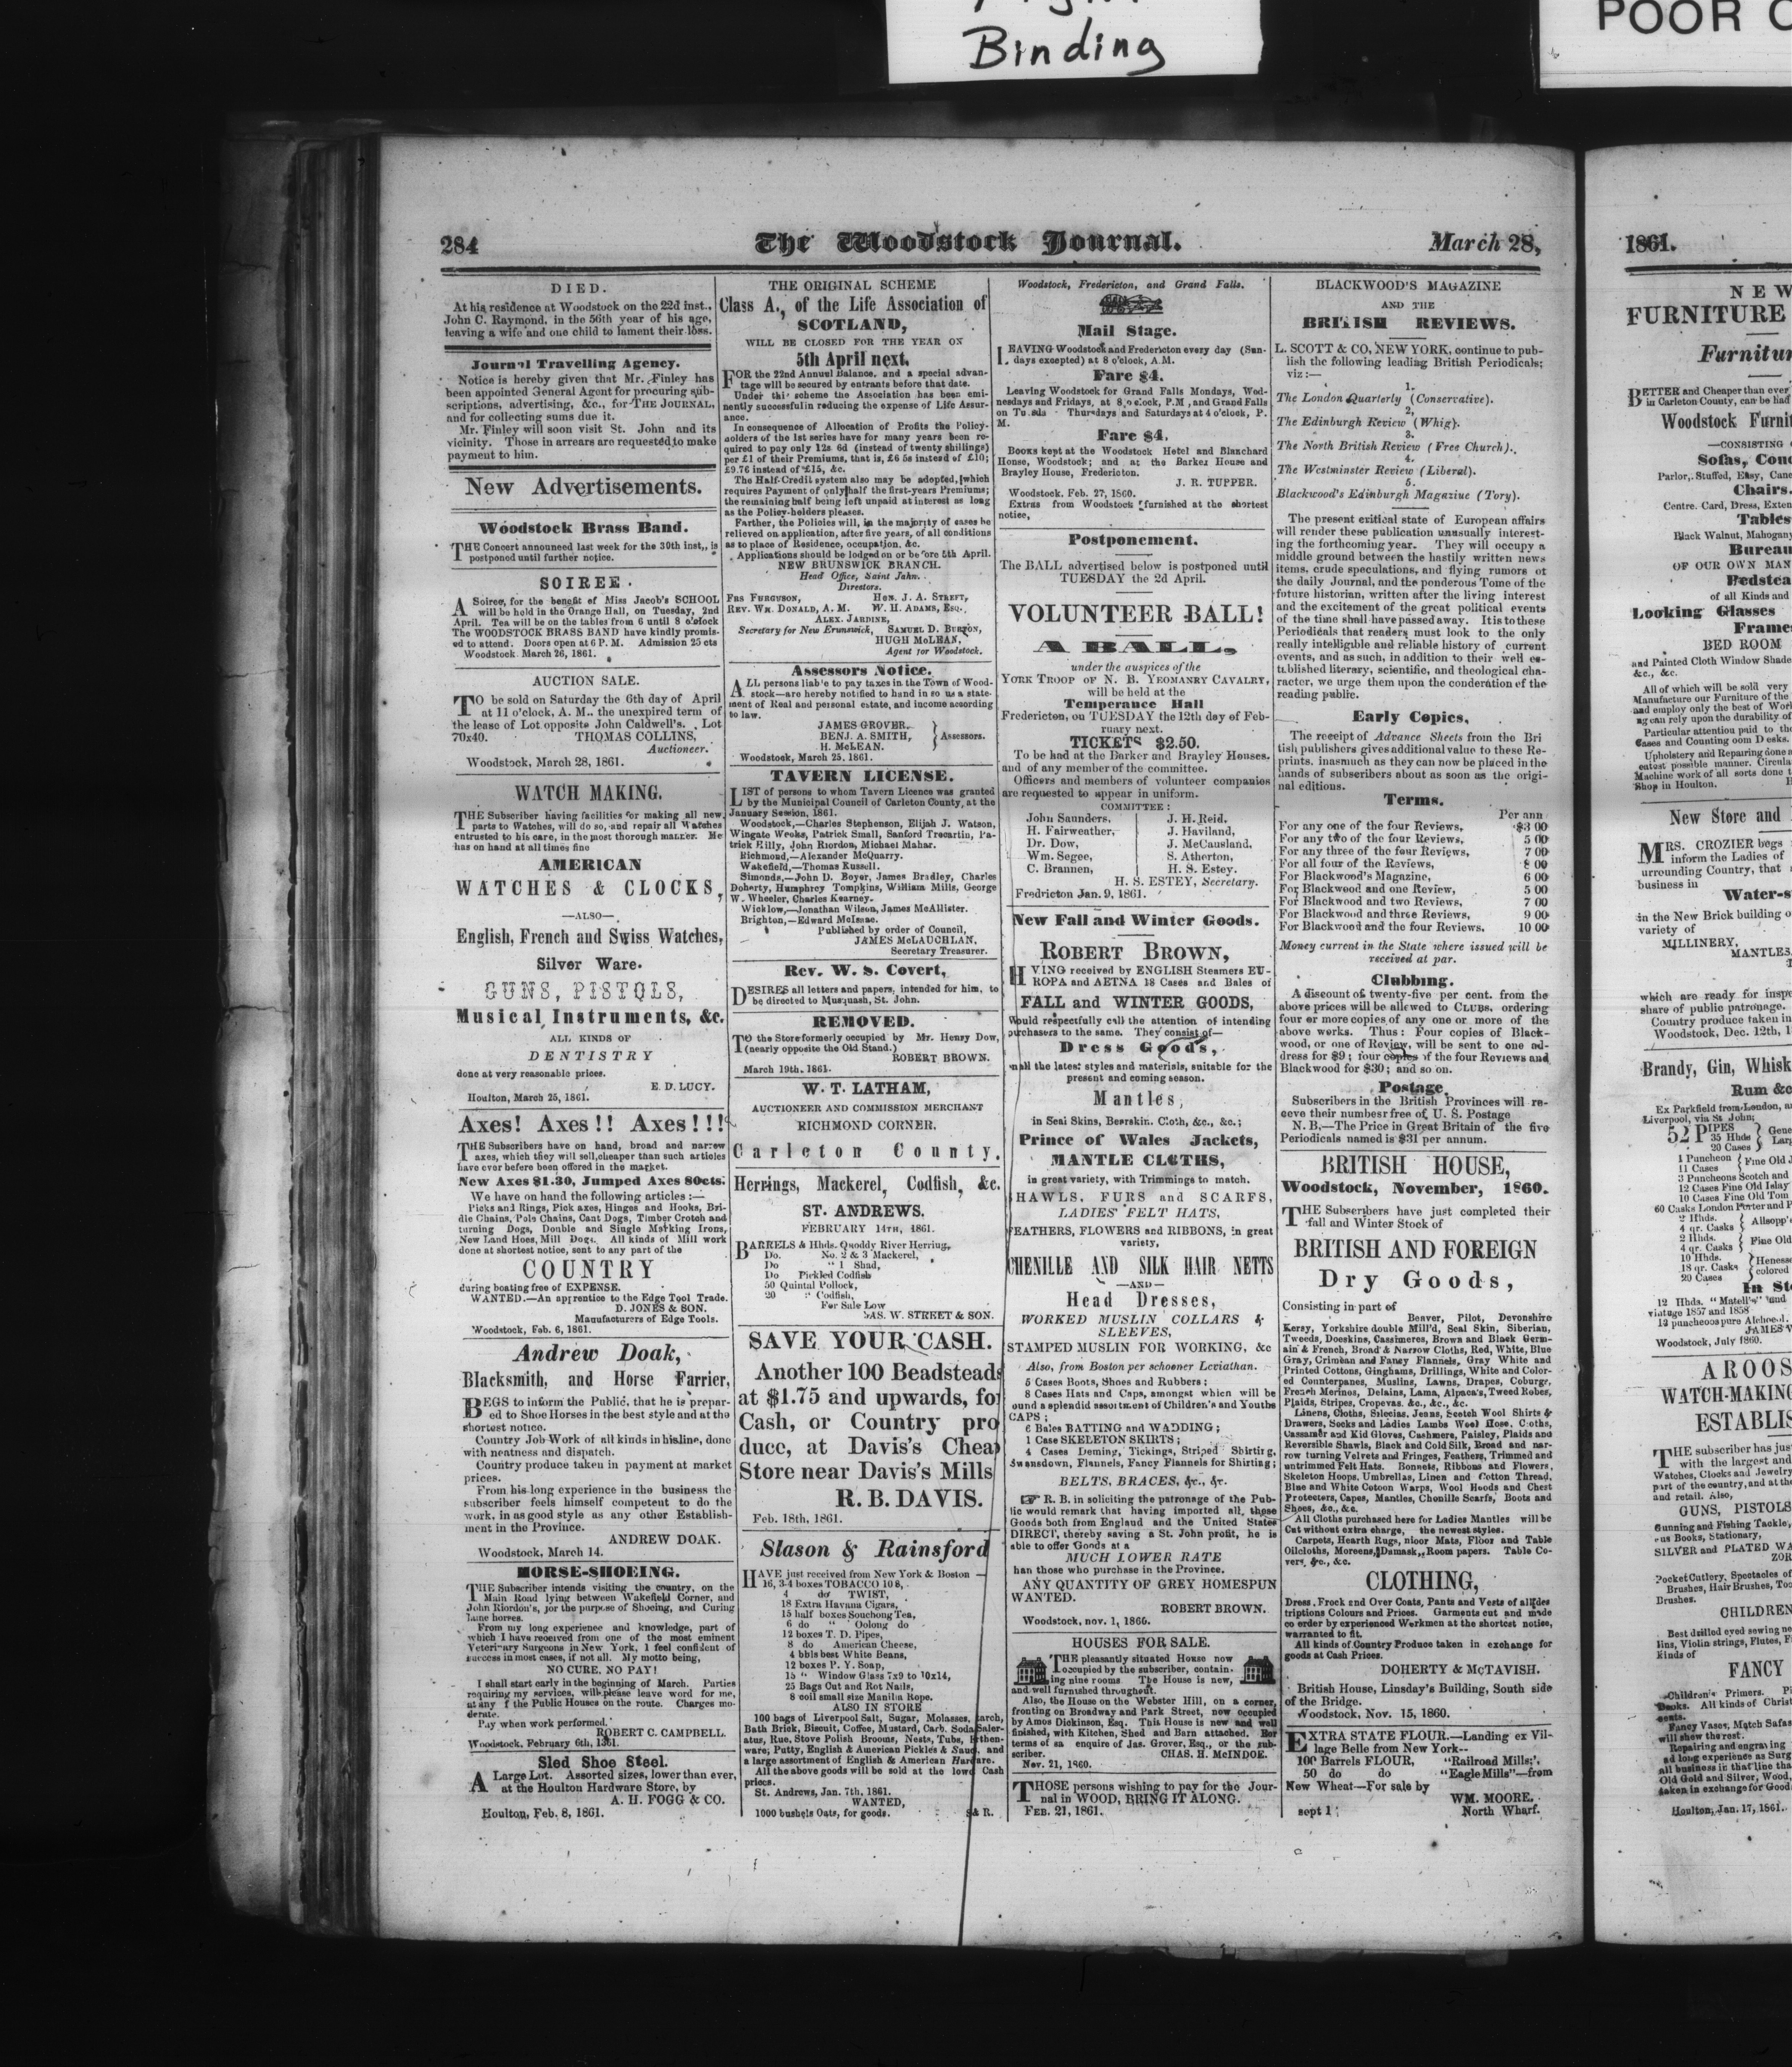 Binding
POOR
284
The Woodstock Journal.
March 28,
DIED.
At his residence at Woodstock on the 22d inst.,
John C. Raymond, in the 56th year of his age,
leaving a wife and one child to lament their loss.
Journal Travelling Agency.
Notice is hereby given that Mr. Finley has
been appointed General Agent for procuring sub-
scriptions, advertising, &c., for THE JOURNAL,
and for collecting sums due it.
Mr. Finley will soon visit St. John and its
vicinity. Those in arrears are requested to make
payment to him.
New Advertisements.
Woodstock Brass Band.
THE Concert announced last week for the 30th inst., is
postponed until further notice.
SOIREE.
A Soiree, for the benefit of Miss Jacob's SCHOOL
will be held in the Orange Hall, on Tuesday, 2nd
April. Tea will be on the tables from 6 until 8 o'clock
The WOODSTOCK BRASS BAND have kindly promis-
ed to attend. Doors open at 6 P. M. Admission 25 cts
Woodstock March 26, 1861.
AUCTION SALE.
TO be sold on Saturday the 6th day of April
at 11 o'clock, A. M.. the unexpired term of
the lease of Lot opposite John Caldwell's. Lot
70x40. THOMAS COLLINS,
Auctioneer.
Woodstock, March 28, 1861.
WATCH MAKING.
THE Subscriber having facilities for making all new
parts to Watches, will do so, and repair all Watches
entrusted to his care, in the most thorough manner. He
has on hand at all times fine
AMERICAN
WATCHES & CLOCKS,
—ALSO—
English, French and Swiss Watches,
Silver Ware.
GUNS, PISTOLS,
Musical Instruments, &c.
ALL KINDS OF
DENTISTRY
done at very reasonable prices.
E. D. LUCY.
Houlton, March 25, 1861.
Axes! Axes!! Axes!!!
THE Subscribers have on hand, broad and narrow
axes, which they will sell cheaper than such articles
have ever before been offered in the market.
New Axes $1.30, Jumped Axes 80cts.
We have on hand the following articles :—
Picks and Rings, Pick axes, Hinges and Hooks, Bri-
dle Chains, Pole Chains, Cant Dogs, Timber Crotch and
turning Dogs, Double and Single Marking Irons,
New Land Hoes, Mill Dogs. All kinds of Mill work
done at shortest notice, sent to any part of the
COUNTRY
during boating free of EXPENSE.
WANTED.—An apprentice to the Edge Tool Trade.
D. JONES & SON.
Manufacturers of Edge Tools.
Woodstock, Feb. 6, 1861.
Andrew Doak,
Blacksmith, and Horse Farrier,
BEGS to inform the Public, that he is prepar-
ed to Shoe Horses in the best style and at the
shortest notice.
Country Job Work of all kinds in his line, done
with neatness and dispatch.
Country produce taken in payment at market
prices.
From his long experience in the business the
subscriber feels himself competent to do the
work, in as good style as any other Establish-
ment in the Province.
ANDREW DOAK.
Woodstock, March 14.
HORSE-SHOEING.
THE Subscriber intends visiting the country, on the
Main Road lying between Wakefield Corner, and
John Riordon's, for the purpose of Shoeing, and Curing
Lame horses.
From my long experience and knowledge, part of
which I have received from one of the most eminent
Veterinary Surgeons in New York, I feel confident of
success in most cases, if not all. My motto being,
NO CURE, NO PAY!
I shall start early in the beginning of March. Parties
requiring my services, will please leave word for me,
at any f the Public Houses on the route. Charges mo-
derate.
Pay when work performed.
ROBERT C. CAMPBELL.
Woodstock, February 6th, 1861.
Sled Shoe Steel.
A Large Lot. Assorted sizes, lower than ever,
at the Houlton Hardware Store, by
A. H. FOGG & CO.
Houlton, Feb. 8, 1861.
THE ORIGINAL SCHEME
Class A., of the Life Association of
SCOTLAND,
WILL BE CLOSED FOR THE YEAR ON
5th April next,
FOR the 22nd Annual Balance, and a special advan-
tage will be secured by entrants before that date.
Under this scheme the Association has been emi-
nently successful in reducing the expense of Life Assur-
ance.
In consequence of Allocation of Profits the Policy-
holders of the 1st series have for many years been re-
quired to pay only 12s 6d (instead of twenty shillings)
per £1 of their Premiums, that is, £6 5s instead of £10;
£9.76 instead of £15, &c.
The Half-Credit system also may be adopted, which
requires Payment of only half the first-years Premiums;
the remaining half being left unpaid at interest as long
as the Policy-holders pleases.
Farther, the Policies will, in the majority of cases be
relieved on application, after five years, of all conditions
as to place of Residence, occupation, &c.
Applications should be lodged on or before 5th April.
NEW BRUNSWICK BRANCH.
Head Office, Saint Jahn.
Directors.
FRS FURGUSON, HON. J. A. STREET,
REV. WM. DONALD, A. M. W. H. ADAMS, ESQ.
ALEX. JARDINE,
Secretary for New Brunswick, SAMUEL D. BURTON,
HUGH McLEAN,
Agent for Woodstock.
Assessors Notice.
ALL persons liable to pay taxes in the Town of Wood-
stock—are hereby notified to hand in so us a state-
ment of Real and personal estate, and income according
to law.
JAMES GROVER,
BENJ. A. SMITH, } Assessors.
H. McLEAN.
Woodstock, March 25. 1861.
TAVERN LICENSE.
LIST of persons to whom Tavern Licence was granted
by the Municipal Council of Carleton County, at the
January Session, 1861.
Woodstock,—Charles Stephenson, Elijah J. Watson,
Wingate Weeks, Patrick Small, Sanford Trecartin, Pa-
trick Killy, John Riordon, Michael Mahar.
Richmond,—Alexander McQuarry.
Wakefield,—Thomas Russell.
Simonds,—John D. Boyer, James Bradley, Charles
Doherty, Humphrey Tompkins, William Mills, George
W. Wheeler, Charles Kearney.
Wicklow,—Jonathan Wilson, James McAllister.
Brighton,—Edward McIsaac.
Published by order of Council,
JAMES McLAUCHLAN,
Secretary Treasurer.
Rev. W. S. Covert,
DESIRES all letters and papers, intended for him, to
be directed to Musquash, St. John.
REMOVED.
TO the Store formerly occupied by Mr. Henry Dow,
(nearly opposite the Old Stand.)
ROBERT BROWN.
March 19th, 1861.
W. T. LATHAM,
AUCTIONEER AND COMMISSION MERCHANT
RICHMOND CORNER.
Carleton County.
Herrings, Mackerel, Codfish, &c.
ST. ANDREWS.
FEBRUARY 14TH, 1861.
BARRELS & Hhds. Quoddy River Herring,
Do. No. 2 & 3 Mackerel,
Do " 1 Shad,
Do Pickled Codfish
50 Quintal Pollock,
20 " Codfish,
For Sale Low
JAS. W. STREET & SON.
SAVE YOUR CASH.
Another 100 Beadsteads
at $1.75 and upwards, for
Cash, or Country pro
duce, at Davis's Cheap
Store near Davis's Mills
R. B. DAVIS.
Feb. 18th, 1861.
Slason & Rainsford
HAVE just received from New York & Boston —
16, 3-4 boxes TOBACCO 10 8,
4 do TWIST,
18 Extra Havana Cigars,
15 half boxes Souchong Tea,
6 do " Oolong do
12 boxes T. D. Pipes,
8 do American Cheese,
4 bbls best White Beans,
12 boxes P. Y. Soap,
15 " Window Glass 7x9 to 10x14,
25 Bags Cut and Rot Nails,
8 coil small size Manilla Rope.
ALSO IN STORE
100 bags of Liverpool Salt, Sugar, Molasses, tarch,
Bath Brick, Biscuit, Coffee, Mustard, Carb. Soda Saler-
atus, Rue, Stove Polish Brooms, Nests, Tubs, Earthen-
ware; Putty, English & American Pickles & Sauc, and
a large assortment of English & American Hardware.
All the above goods will be sold at the lowe Cash
prices.
St. Andrews, Jan. 7th, 1861.
WANTED,
1000 bushels Oats, for goods. S & R.
Woodstock, Fredericton, and Grand Falls.
Mail Stage.
LEAVING Woodstock and Fredericton every day (Sun-
days excepted) at 8 o'clock, A.M.
Fare $4.
Leaving Woodstock for Grand Falls Mondays, Wed-
nesdays and Fridays, at 8 o'clock, P.M, and Grand Falls
on Tu sds Thursdays and Saturdays at 4 o'clock, P.
M.
Fare $4.
Books kept at the Woodstock Hotel and Blanchard
House, Woodstock; and at the Barker House and
Brayley House, Fredericton.
J. R. TUPPER.
Woodstock, Feb. 27, 1860.
Extras from Woodstock furnished at the shortest
notice,
Postponement.
The BALL advertised below is postponed until
TUESDAY the 2d April.
VOLUNTEER BALL!
A BALL,
under the auspices of the
YORK TROOP OF N. B. YEOMANRY CAVALRY,
will be held at the
Temperance Hall
Fredericton, on TUESDAY the 12th day of Feb-
ruary next.
TICKETS $2.50.
To be had at the Barker and Brayley Houses,
and of any member of the committee.
Officers and members of volunteer companies
are requested to appear in uniform.
COMMITTEE:
John Saunders, J. H. Reid,
H. Fairweather, J. Haviland,
Dr. Dow, J. McCausland,
Wm. Segee, S. Atherton,
C. Brannen, H. S. Estey.
H. S. ESTEY, Secretary.
Fredricton Jan. 9, 1861.
New Fall and Winter Goods.
ROBERT BROWN,
H VING received by ENGLISH Steamers EU-
ROPA and AETNA 18 Cases and Bales of
FALL and WINTER GOODS,
Would respectfully call the attention of intending
purchasers to the same. They consist of—
Dress Goods,
in all the latest styles and materials, suitable for the
present and coming season.
Mantles,
in Seal Skins, Bearskin, Cloth, &c., &c.;
Prince of Wales Jackets,
MANTLE CLOTHS,
in great variety, with Trimmings to match.
SHAWLS, FURS and SCARFS,
LADIES' FELT HATS,
FEATHERS, FLOWERS and RIBBONS, in great
variety,
CHENILLE AND SILK HAIR NETTS
—AND—
Head Dresses,
WORKED MUSLIN COLLARS &
SLEEVES,
STAMPED MUSLIN FOR WORKING, &c
Also, from Boston per schooner Leviathan.
5 Cases Boots, Shoes and Rubbers;
8 Cases Hats and Caps, amongst which will be
ound a splendid assortment of Children's and Youths
CAPS;
6 Bales BATTING and WADDING;
1 Case SKELETON SKIRTS;
4 Cases Deming, Tickings, Striped Shirtig,
Swansdown, Flannels, Fancy Flannels for Shirting;
BELTS, BRACES, &c., &c.
☞ R. B. in soliciting the patronage of the Pub-
lic would remark that having imported all, these
Goods both from England and the United States
DIRECT, thereby saving a St. John profit, he is
able to offer Goods at a
MUCH LOWER RATE
han those who purchase in the Province.
ANY QUANTITY OF GREY HOMESPUN
WANTED.
ROBERT BROWN.
Woodstock, nov. 1, 1860.
HOUSES FOR SALE.
THE pleasantly situated House now
occupied by the subscriber, contain-
ing nine rooms The House is new,
and well furnished throughout.
Also, the House on the Webster Hill, on a corner,
fronting on Broadway and Park Street, now occupied
by Amos Dickinson, Esq. This House is new and well
finished, with Kitchen, Shed and Barn attached. For
terms of sa enquire of Jas. Grover, Esq., or the sub-
scriber. CHAS. H. McINDOE.
Nov. 21, 1860.
THOSE persons wishing to pay for the Jour-
nal in WOOD, BRING IT ALONG.
FEB. 21, 1861.
BLACKWOOD'S MAGAZINE
AND THE
BRITISH REVIEWS.
L. SCOTT & CO, NEW YORK, continue to pub-
lish the following leading British Periodicals;
viz :—
1.
The London Quarterly (Conservative).
2,
The Edinburgh Review (Whig).
3.
The North British Review (Free Church).
4.
The Westminster Review (Liberal).
5.
Blackwood's Edinburgh Magazine (Tory).
The present critical state of European affairs
will render these publication unusually interest-
ing the forthcoming year. They will occupy a
middle ground between the hastily written news
items, crude speculations, and flying rumors of
the daily Journal, and the ponderous Tome of the
future historian, written after the living interest
and the excitement of the great political events
of the time shall have passed away. It is to these
Periodicals that readers must look to the only
really intelligible and reliable history of current
events, and as such, in addition to their well es-
tablished literary, scientific, and theological cha-
racter, we urge them upon the conderation of the
reading public.
Early Copies,
The receipt of Advance Sheets from the Bri
tish publishers gives additional value to these Re-
prints, inasmuch as they can now be placed in the
hands of subscribers about as soon as the origi-
nal editions.
Terms.
Per ann
For any one of the four Reviews, $3 00
For any two of the four Reviews, 5 00
For any three of the four Reviews, 7 00
For all four of the Reviews, 8 00
For Blackwood's Magazine, 6 00
For Blackwood and one Review, 5 00
For Blackwood and two Reviews, 7 00
For Blackwood and three Reviews, 9 00
For Blackwood and the four Reviews, 10 00
Money current in the State where issued will be
received at par.
Clubbing.
A discount of twenty-five per cent. from the
above prices will be allowed to CLUBS, ordering
four or more copies of any one or more of the
above works. Thus: Four copies of Black-
wood, or one of Review, will be sent to one ad-
dress for $9; four copies of the four Reviews and
Blackwood for $30; and so on.
Postage
Subscribers in the British Provinces will re-
ceve their numbers free of U. S. Postage
N. B.—The Price in Great Britain of the five
Periodicals named is $31 per annum.
BRITISH HOUSE,
Woodstock, November, 1860.
THE Subscribers have just completed their
fall and Winter Stock of
BRITISH AND FOREIGN
Dry Goods,
Consisting in part of
Beaver, Pilot, Devonshire
Kersy, Yorkshire double Mill'd, Seal Skin, Siberian,
Tweeds, Doeskins, Cassimeres, Brown and Black Germ-
ain & French, Broad & Narrow Cloths, Red, White, Blue
Gray, Crimean and Fancy Flannels, Gray White and
Printed Cottons, Ginghams, Drillings, White and Color-
ed Counterpanes, Muslins, Lawns, Drapes, Coburgs,
French Merinos, Delains, Lama, Alpaca's, Tweed Robes,
Plaids, Stripes, Cropevas. &c., &c., &c.
Linens, Cloths, Silecias, Jeans, Scotch Wool Shirts &
Drawers, Socks and Ladies Lambs Wool Hose, Cloths,
Cassamer and Kid Gloves, Cashmere, Paisley, Plaids and
Reversible Shawls, Black and Cold Silk, Broad and nar-
row turning Velvets and Fringes, Feathers, Trimmed and
untrimmed Felt Hats. Bonnets, Ribbons and Flowers,
Skeleton Hoops, Umbrellas, Linen and Cotton Thread,
Blue and White Cotoon Warps, Wool Hoods and Chest
Protecters, Capes, Mantles, Chenille Scarfs, Boots and
Shoes, &c., &c.
All Cloths purchased here for Ladies Mantles will be
Cut without extra charge, the newest styles.
Carpets, Hearth Rugs, nioor Mats, Floor and Table
Oilcloths, Moreens, Damask, Room papers. Table Co-
vers, &c., &c.
CLOTHING,
Dress, Frock and Over Coats, Pants and Vests of all des
triptions Colours and Prices. Garments cut and made
co order by experienced Workmen at the shortest notice,
warranted to fit.
All kinds of Country Produce taken in exchange for
goods at Cash Prices.
DOHERTY & McTAVISH.
British House, Linsday's Building, South side
of the Bridge.
Woodstock. Nov. 15, 1860.
EXTRA STATE FLOUR.—Landing ex Vil-
lage Belle from New York--
100 Barrels FLOUR, "Railroad Mills;'
50 do do "Eagle Mills"—from
New Wheat—For sale by
WM. MOORE,
sept 1 North Wharf.
1861.
NEW
FURNITURE
BETTER and Cheaper than ever
in Carleton County, can be had
—CONSISTING
Parlor, Stuffed, Easy, Cane
Chairs.
Centre. Card, Dress, Exten
Tables
Black Walnut, Mahogany
Bureau
OF OUR OWN MAN
Bedstea
of all kinds and
Looking Glasses
Frames
BED ROOM
and Painted Cloth Window Shade
&c., &c.
All of which will be sold very
Manufacture our Furniture of the
and employ only the best of Work
Particular attention paid to the
Shop in Houlton.
New Store and
MRS. CROZIER begs
inform the Ladies of
urrounding Country, that
business in
in the New Brick building o
variety of
MILLINERY,
MANTLES
which are ready for inspe
share of public patronage.
Country produce taken in
Woodstock, Dec. 12th, 1
Brandy, Gin, Whisk
Rum &c
Ex Parkfield from London, a
Liverpool, via St John;
52 PIPES
35 Hhds
20 Cases
1 Puncheon
11 Cases
3 Puncheons Scotch and
12 Cases Fine Old Islay
10 Cases Fine Old Tom
60 Casks London Porter and P
2 Hhds.
4 qr. Casks
2 Hhds.
4 qr. Casks
10 Hhds.
18 qr. Casks
20 Cases
vintage 1857 and 1858
Woodstock, July 1860.
AROOS
WATCH-MAKING
ESTABLIS
THE subscriber has jus
with the largest and
Watches, Clocks and Jewelry
part of the country, and at the
and retail. Also,
GUNS, PISTOLS
Gunning and Fishing Tackle,
SILVER and PLATED WA
Pocket Cutlery, Spectacles of
Brushes, Hair Brushes, Too
Brushes.
CHILDREN
Best drilled eyed sewing ne
lins, Violin strings, Flutes, F
Kinds of
FANCY
Children's Primers.
Books. All kinds of Christ
cents.
Fancy Vases, Match Safes
will shew the rest.
Repairing and engraving
all business in that line tha
Old Gold and Silver, Wood,
taken in exchange for Goods
Houlton, Jan. 17, 1861.